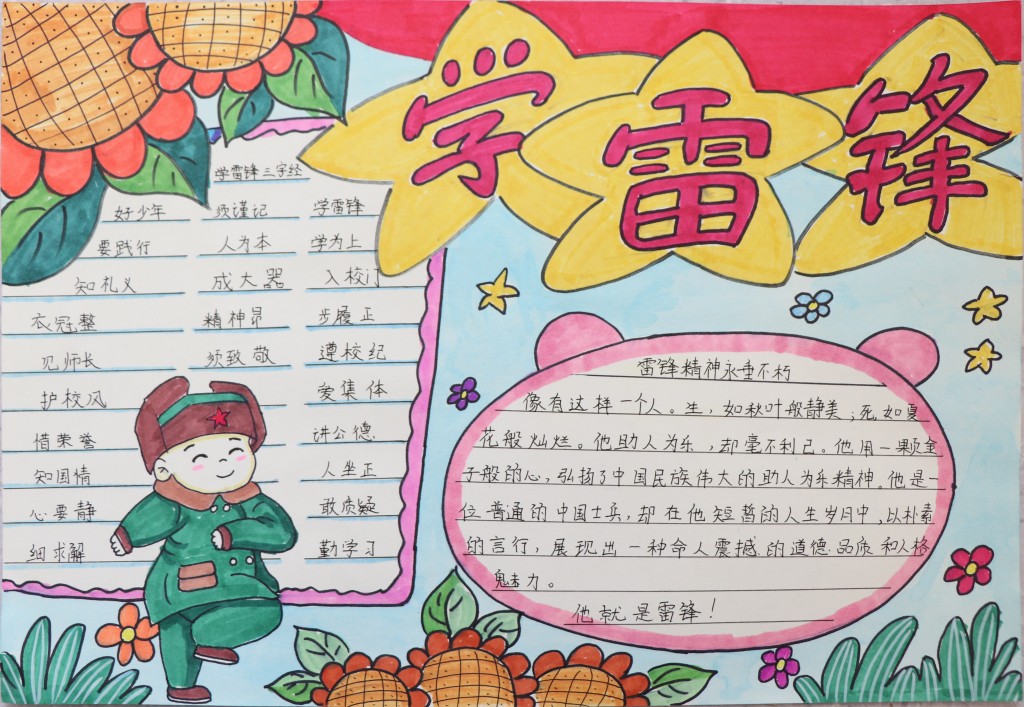 学雷锋
学雷锋三字经
好少年 须谨记 学雷锋
要践行 人为本 学为上
知礼义 成大器 入校门
衣冠整 精神昂 步履正
见师长 须致敬 遵校纪
护校风 爱集体
惜荣誉 讲公德
知国情 人坐正
心要静 敢质疑
细求解 勤学习
雷锋精神永垂不朽
像有这样一个人。生，如秋叶般静美；死如夏
花般灿烂。他助人为乐，却毫不利己。他用一颗金
子般的心，弘扬了中国民族伟大的助人为乐精神。他是一
位普通的中国士兵，却在他短暂的人生岁月中，以朴素
的言行，展现出一种命人震撼的道德品质和人格
魅力。
他就是雷锋！